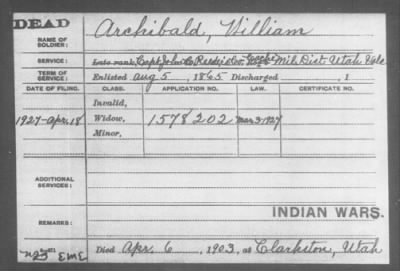 DEAD
NAME OF SOLDIER: Archibald, William
SERVICE: Late rank, Capt John Co. Mil. Dist. Utah Vols
TERM OF SERVICE: Enlisted Aug 5, 1865 Discharged , 1
DATE OF FILING. CLASS. APPLICATION NO. LAW. CERTIFICATE NO.
Invalid,
1927-Apr. 18 Widow, 1578202 Mar. 3-1927
Minor,
ADDITIONAL SERVICES:
INDIAN WARS.
REMARKS:
Died Apr. 6, 1903, at Clarkston, Utah